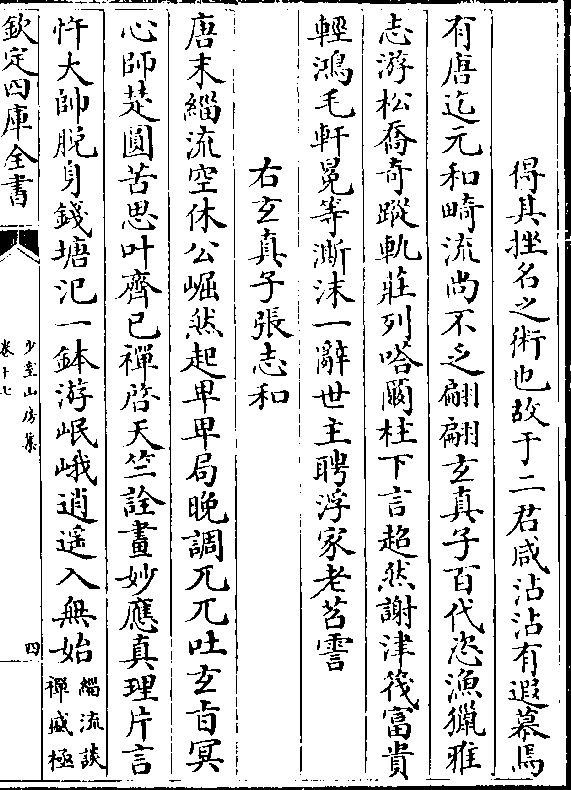 得其挫名之術也故于二君咸沾沾有遐慕焉
有唐迄元和畸流尚不乏翩翩玄真子百代恣漁獵雅
志游松喬奇蹤軌莊列嗒爾柱下言超然謝津筏富貴
輕鴻毛軒冕等澌沫一辭世主聘浮家老苕霅
右玄真子張志和
唐末緇流空休公崛然起卑卑局晚調兀兀吐玄㫖冥
心師楚圓苦思叶齊已禪啓天竺詮畫妙應真理片言
忤大帥脱身錢塘汜一鉢游岷峨逍遥入無始
緇流談
禪盛極
欽定四庫全書
少室山房集
卷十七
四